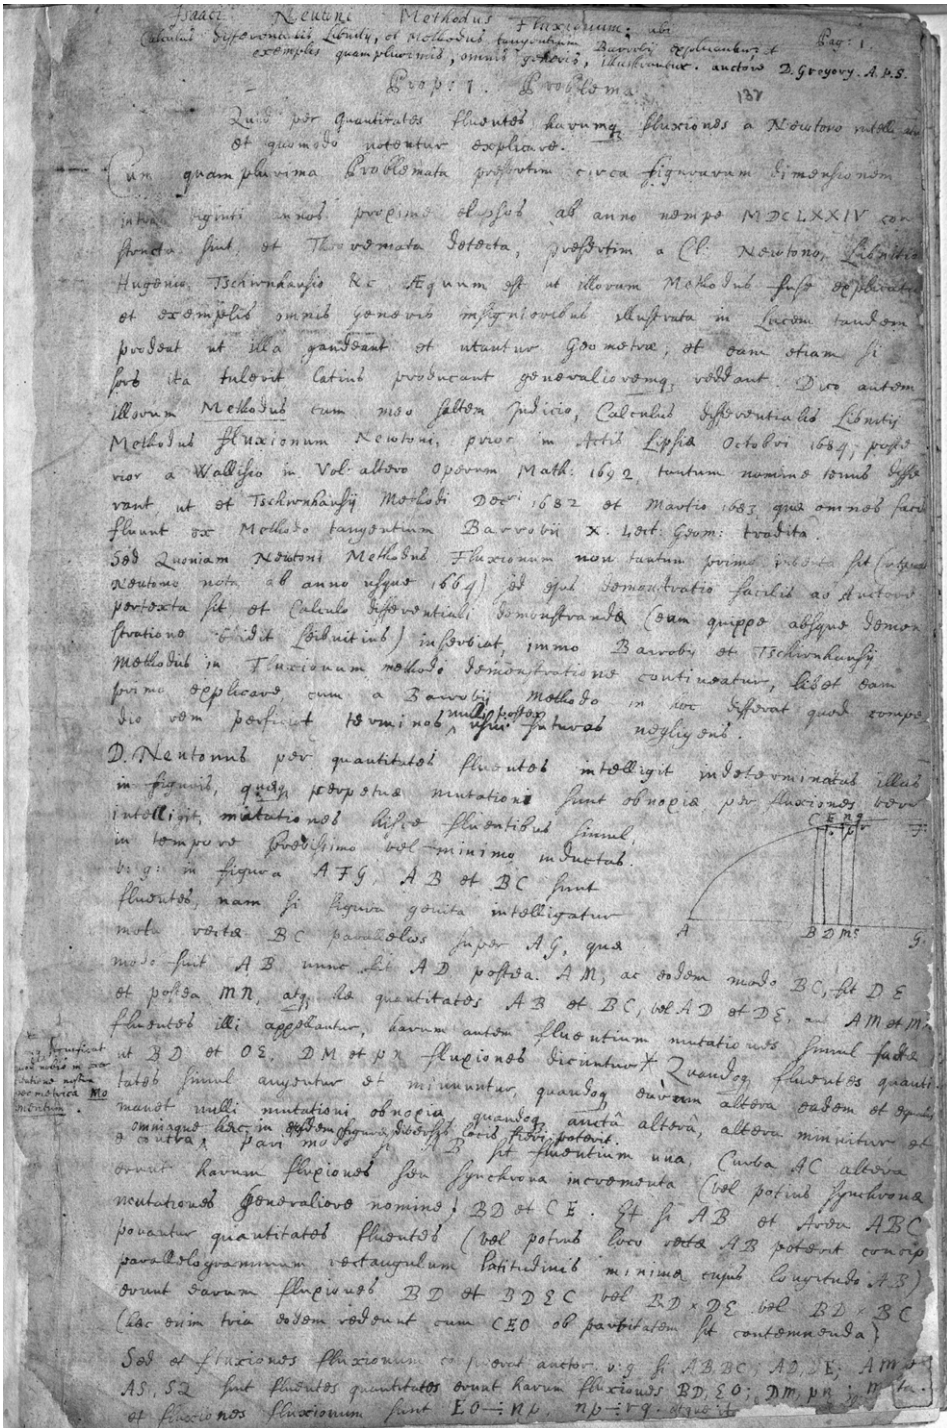 Isaaci Newtoni Methodus Fluxionum: ubi
Calculus differentialis Libnitij, et Methodus tangentium Barrobij explicantur et
exemplis quamplurimis, omnis generis, illustrantur. auctore D. Gregory. A. P. S.
Pag: 1.
Prop: 1. Problema
138
Quid per Quantitates fluentes harumq fluxiones a Newtono
et quomodo notentur explicare.
Cum quam plurima Problemata presertim circa figurarum dimensionem
intra viginti annos proxime elapsos ab anno nempe MDCLXXIV con
structa sint et Theoremata detecta, presertim a Cl: Newtono, Libnitio
Hugenio, Tschirnhausio &c. Æquum est ut illorum Methodus fuse
et exemplis omnis generis insignioribus illustrata in Lucem tandem
prodeat ut illa gaudeant et utantur Geometræ, et eam etiam si
sors ita tulerit latius producant generalioremq, reddant. Dico autem
illorum Methodus cum meo saltem Judicio, Calculus differentialis Libnitij
Methodus fluxionum Newtoni, prior in Actis Lipsiæ Octobri 1684, poste
rior a Wallisio in Vol: altero Operum Math: 1692, tantum nomine tenus diffe
rant, ut et Tschirnhausij Methodi Decri 1682 et Martio 1683 quæ omnes
fluunt ex Methodo tangentium Barrobij X. Lect: Geom: tradita.
Sed Quoniam Newtoni Methodus Fluxionum non tantum primo inventa sit
Newtono nota ab anno usque 1664) sed ejus demonstratio facilis ac Auctore
pertexta sit et Calculo differentiali demonstrando (eum quippe absque demon
stratione edidit Leibnitius) inserviat, immo Barroby et Tschirnhausij
Methodus in Fluxionum methodi demonstratione contineatur, libet eam
primo explicare, cum a Barrobij methodo in hoc differat quod compe
dio rem perficiat terminos nulli postea usui futuros negligens.
D. Newtonus per quantitates fluentes intelligit indeterminatas illas
in figuris, quæ perpetuæ mutationi sunt obnoxiæ per fluxiones vero
intelligit, mutationes hisce fluentibus simul
in tempore brevissimo vel minimo inductas.
v: g: in figura AFG, AB et BC sunt
fluentes, nam si figura genita intelligatur
motu rectæ BC parallelωs super AG, quæ
modo fuit AB nunc sit AD postea AM, ac eodem modo BC, sit DE
et postea MN, atq hæ quantitates AB et BC, vel AD et DE, aut AM et MN
fluentes illi appellantur, harum autem fluentium mutationes simul factæ
ut BD et OE, DM et pN fluxiones dicuntur Quandoq fluentes quanti
tates simul augentur et minuuntur, quandoq earum altera eadem et
manet nulli mutationi obnoxia, quandoq auctâ alterâ, altera minuitur et
omniaque hæc in eadem figura, diversis locis fieri poterit.
e contra, pari modo si AB sit fluentium una, Curva AC altera
erunt harum fluxiones seu synchrona incrementa (vel potius synchronæ
mutationes generaliore nomine) BD et CE. Et si AB et Area ABC
ponantur quantitates fluentes (vel potius loco rectæ AB poterit concip
parallelogrammum rectangulum latitudinis minimæ cujus longitudo AB)
erunt earum fluxiones BD et BDEC vel BD × DE vel BD × BC
(hæc enim tria eodem redeunt cum CEO ob parvitatem sit contemnenda)
Sed et fluxiones fluxionum auctor v: g si AB, BC; AD, DE; AM
AS, SQ sint fluentes quantitates erunt harum fluxiones BD, EO; DM, pN;
et fluxiones fluxionum sunt EO ÷ Np, Np ÷ rq.
significat
Mo
mentum
C E N Q
F
A B D M S G